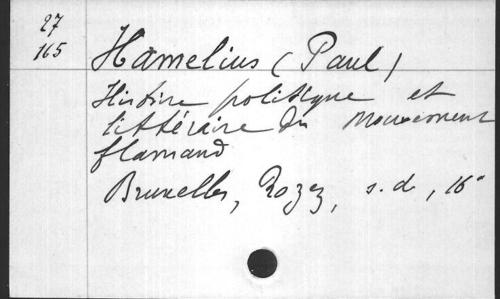 27
165
Hamelius (Paul)
Histoire politique et
littéraire du mouvement
flamand
Bruxelles, Rozez, s.d., 16°